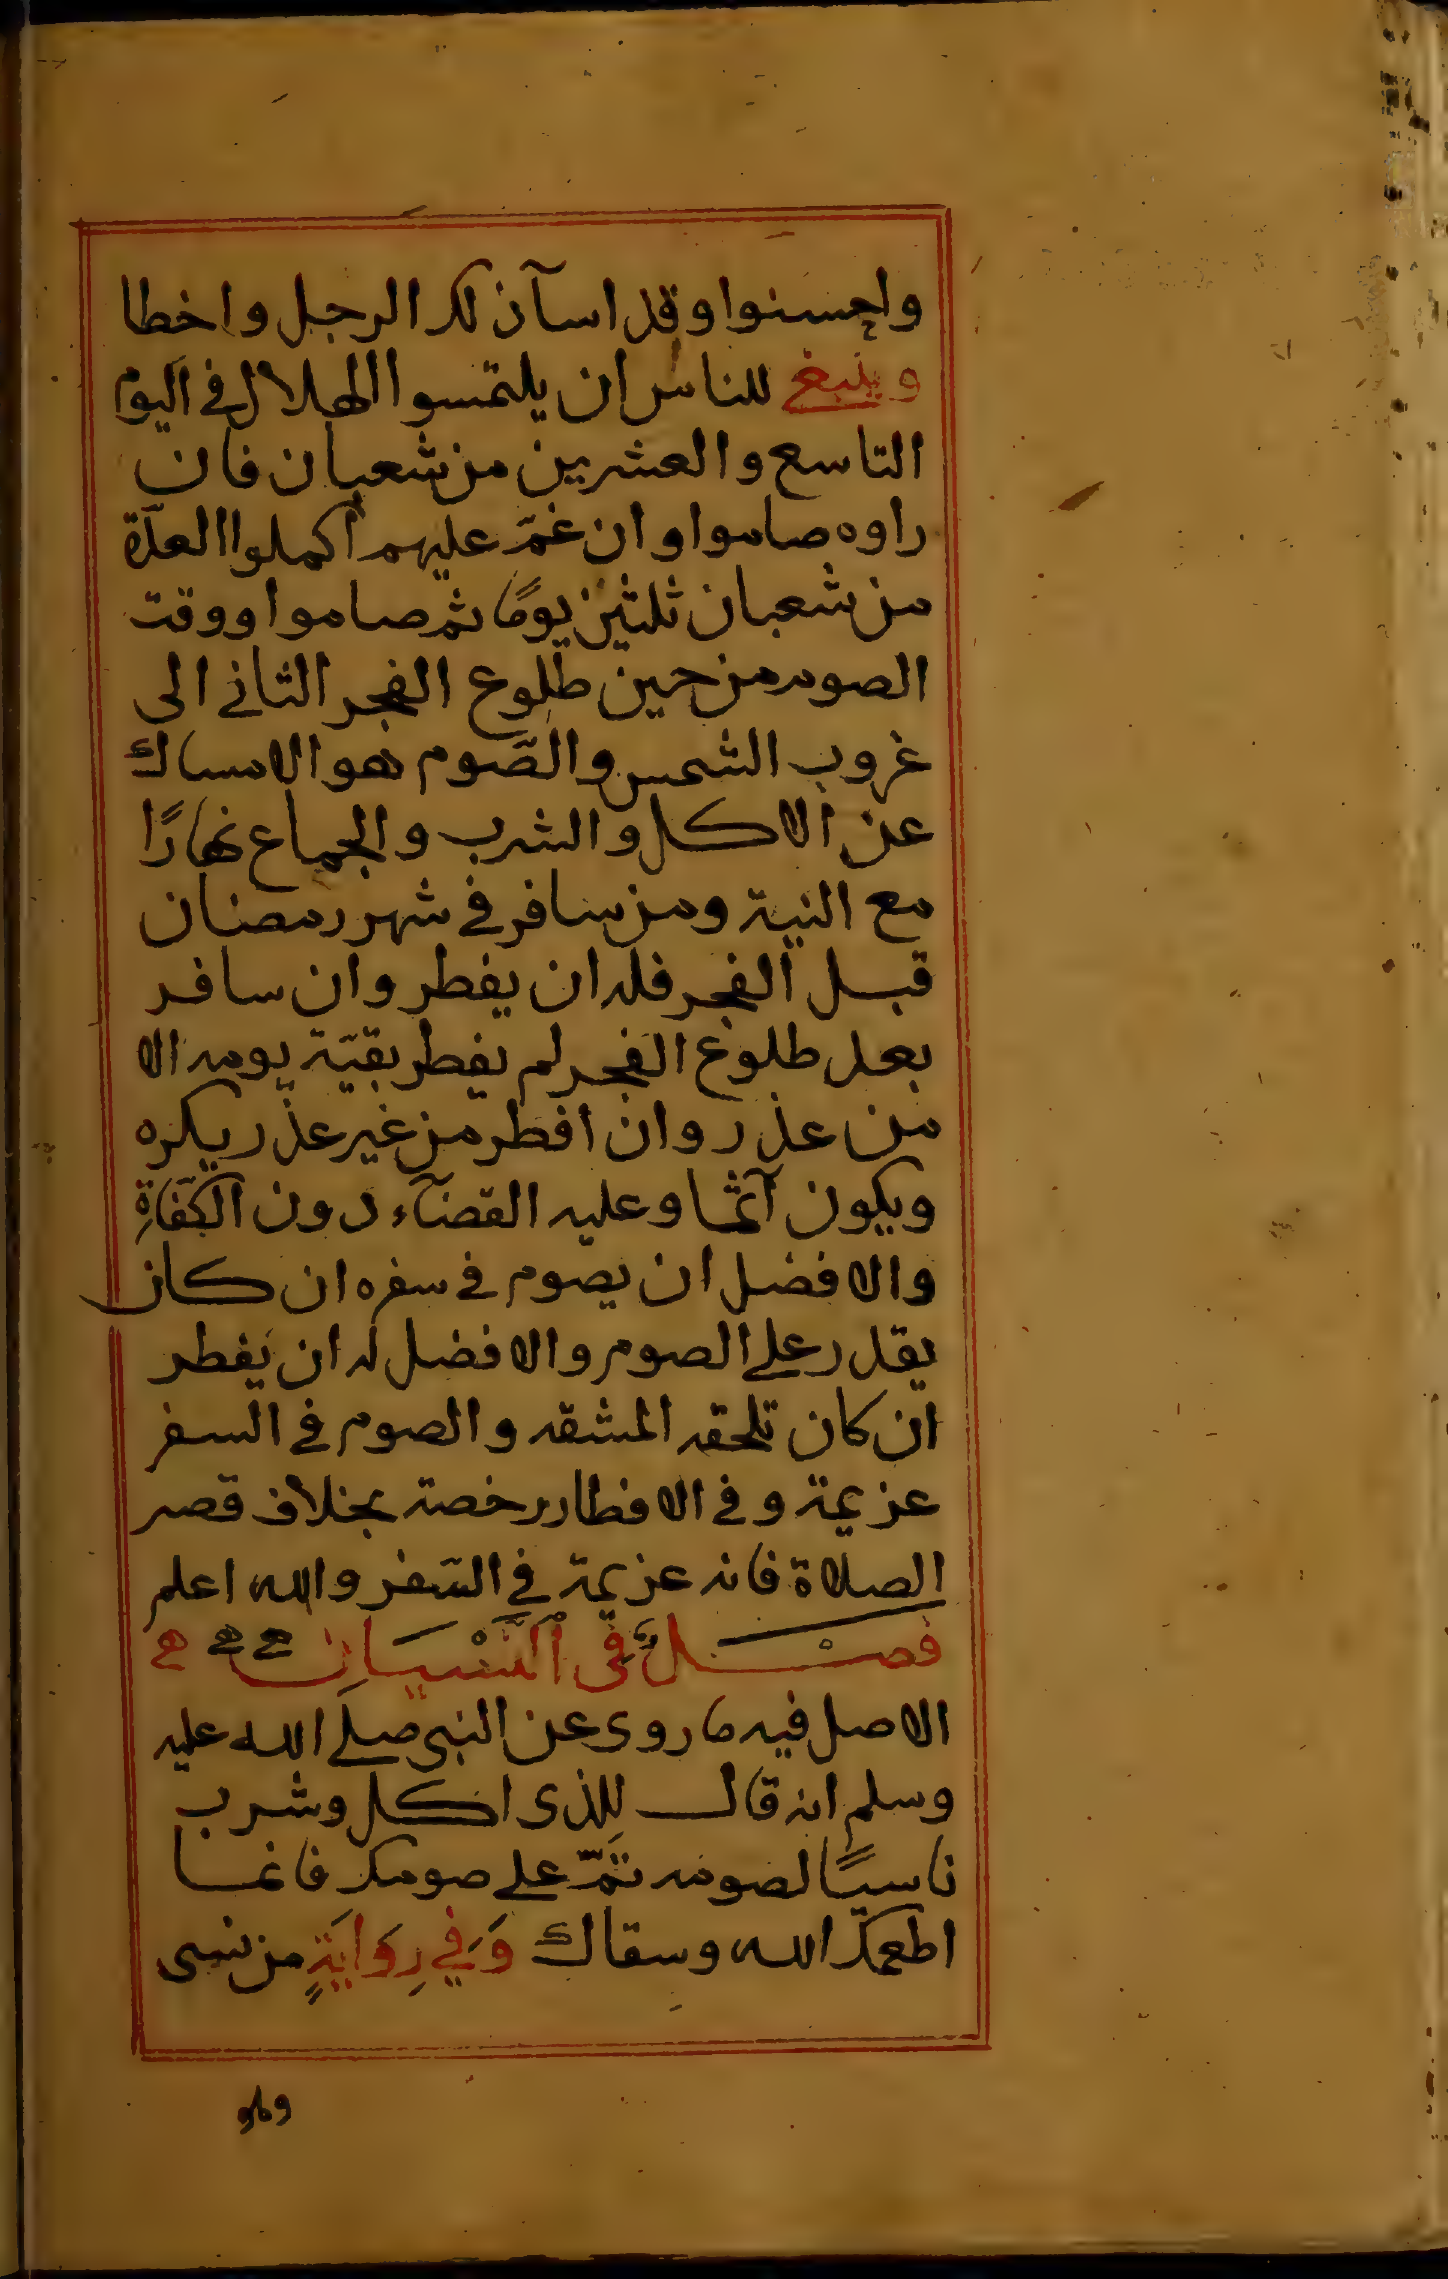 واحسنوا وقد اسآ ذلك الرجل واخطا
وينبغي للناس ان يلتمسوا الهلال في اليوم
التاسع والعشرين من شعبان فان
راوه صاموا وان غمّ عليهم اكملوا العدّة
من شعبان ثلثين يومًا ثم صاموا ووقت
الصوم من حين طلوع الفجر الثاني الى
غروب الشمس والصّوم هو الامساك
عن الاكل والشرب والجماع نهارًا
مع النية ومن سافر في شهر رمضان
قبل الفجر فله ان يفطر وان سافر
بعد طلوع الفجر لم يفطر بقيّة يومه الا
من عذر وان افطر من غير عذر يكره
ويكون آثما وعليه القضآء دون الكفّاة
والافضل ان يصوم في سفره ان كان
يقدر على الصوم والافضل له ان يفطر
ان كان تلحقه المشقه والصوم في السفر
عزيمة وفي الافطار رخصة بخلاف قصر
الصلاة فانه عزيمة في السّفر والله اعلم
فصْلٌ في النّسْيَانِ
الاصل فيه ما روى عن النبي صلى الله عليه
وسلم انه قال للذى اكل وشرب
ناسيًا لصومه تمّ على صومك فانما
اطعمك الله وسقاك وَفي رِوَايَةٍ من نسى